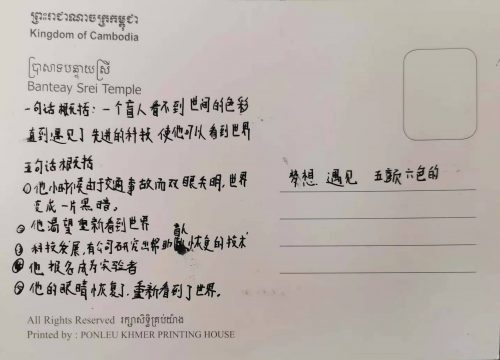 ព្រះរាជាណាចក្រកម្ពុជា
Kingdom of Cambodia
ប្រាសាទបន្ទាយស្រី
Banteay Srei Temple
一句话概括：一个盲人看不到世间的色彩
直到遇见了先进的科技 使他可以看到世界
五句话概括
①他小时候由于交通事故而双眼失明，世界
变成一片黑暗。
②他渴望重新看到世界
③科技发展，有公司研究出帮助盲人恢复的技术
④他报名成为实验者
⑤他的眼睛恢复了，重新看到了世界。
梦想 遇见 五颜六色的
All Rights Reserved រក្សាសិទ្ធិគ្រប់យ៉ាង
Printed by : PONLEU KHMER PRINTING HOUSE